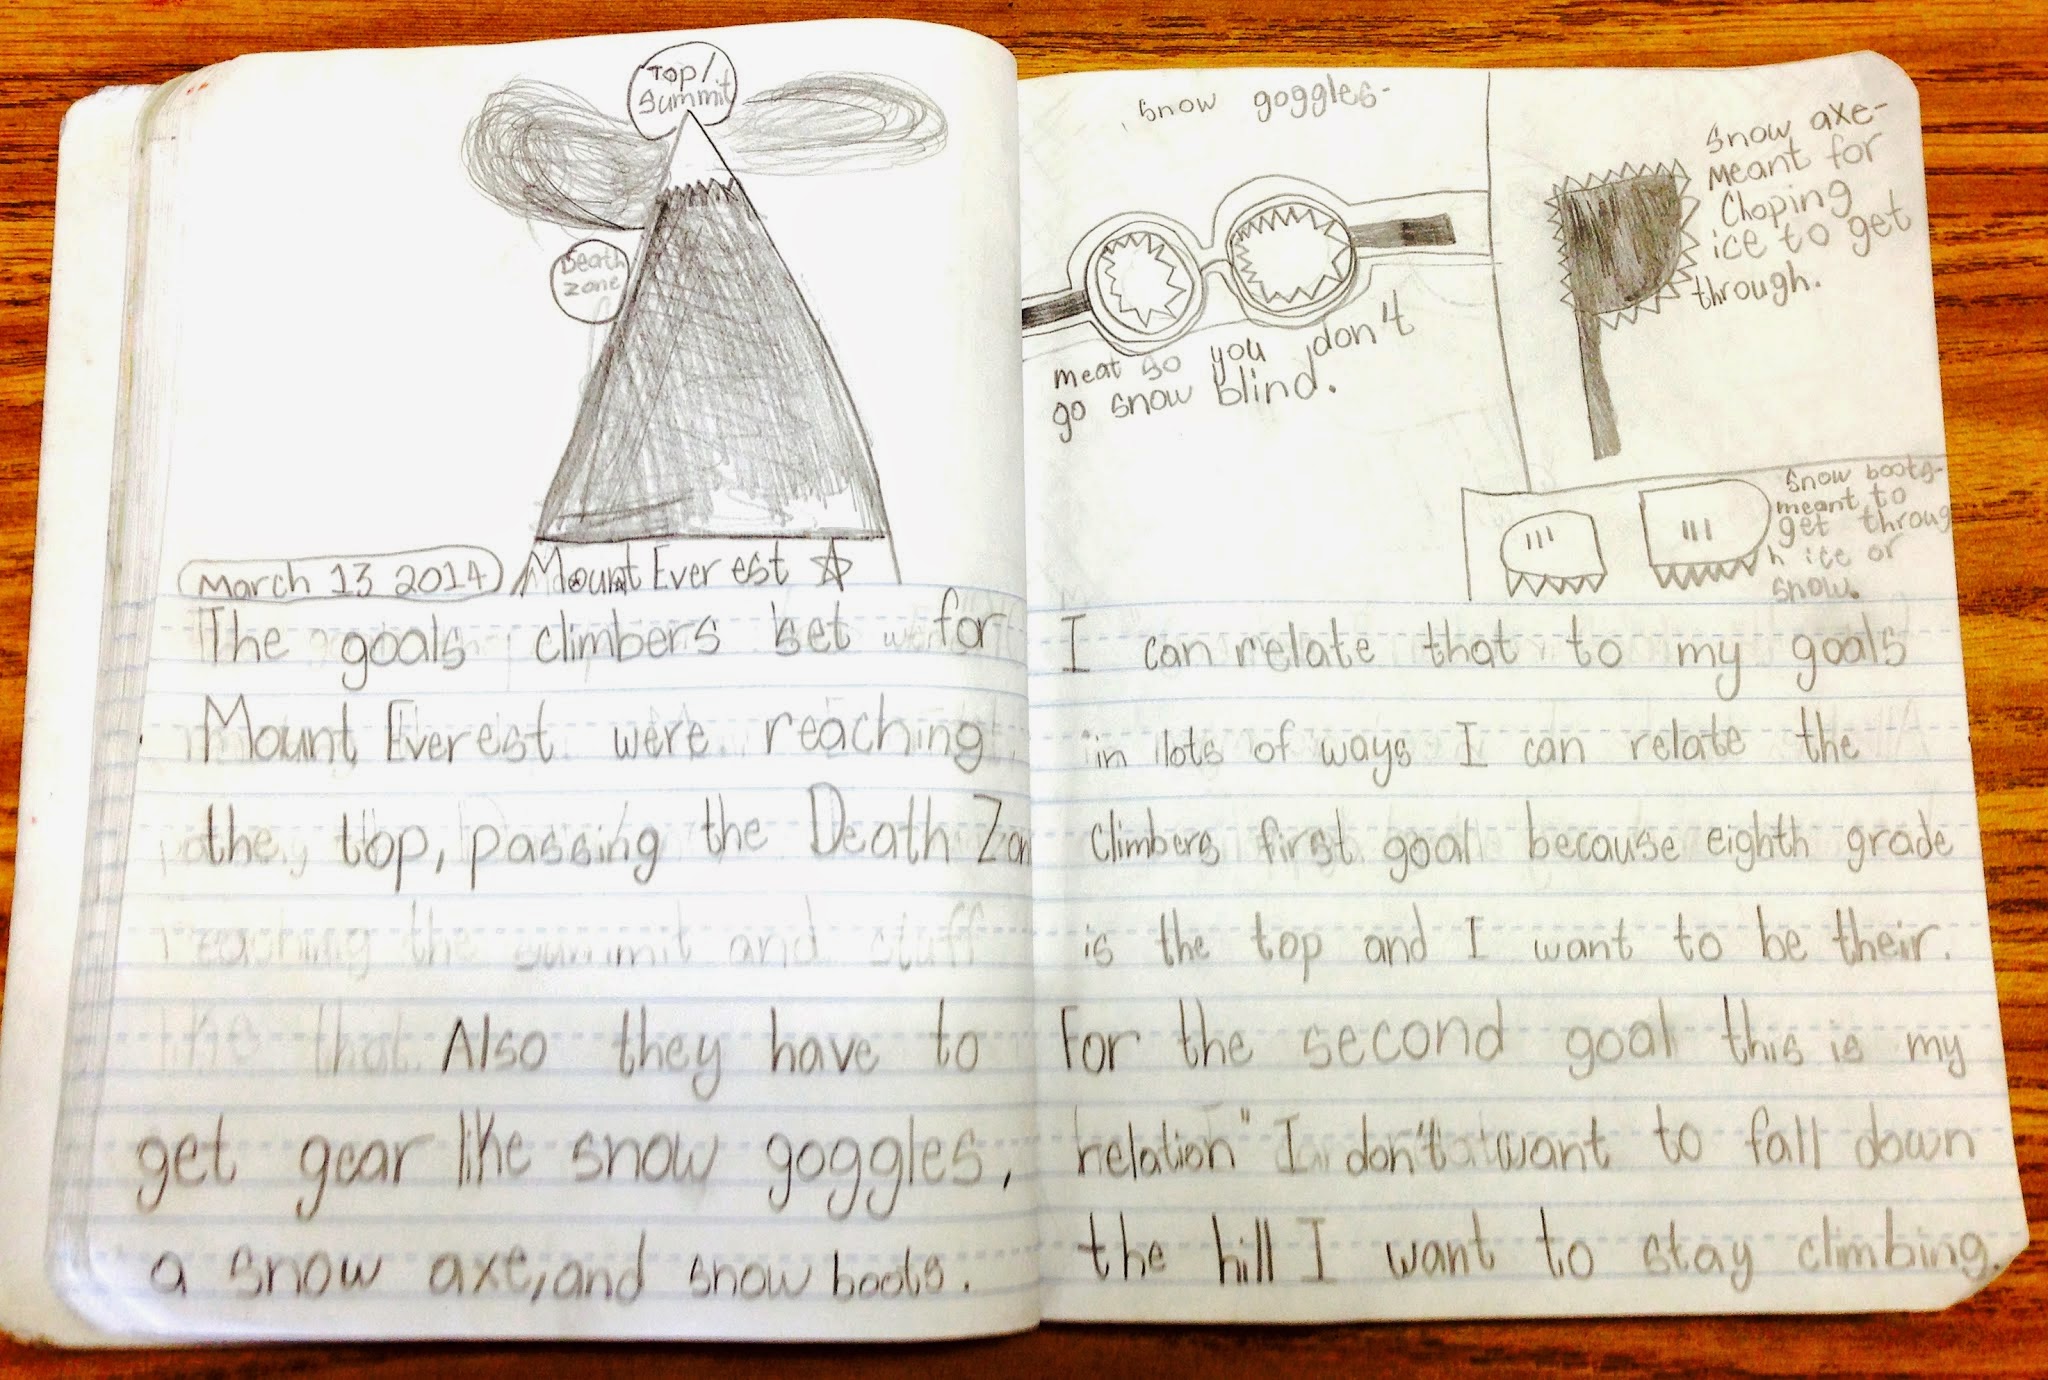 Top/
Summit
Death
Zone
March 13 2014
Mount Everest
The goals climbers set for
Mount Everest were reaching
the top, passing the Death Zon
reaching the summit and stuff
like that. Also they have to
get gear like snow goggles,
a snow axe, and snow boots.
snow goggles-
meat so you don't
go snow blind.
Snow axe-
meant for
Choping
ice to get
through.
Snow boots-
meant to
get throug
h ice or
snow.
I can relate that to my goals
in lots of ways I can relate the
Climbers first goal because eighth grade
is the top and I want to be their.
For the second goal this is my
relation" I don't want to fall down
the hill I want to stay climbing.